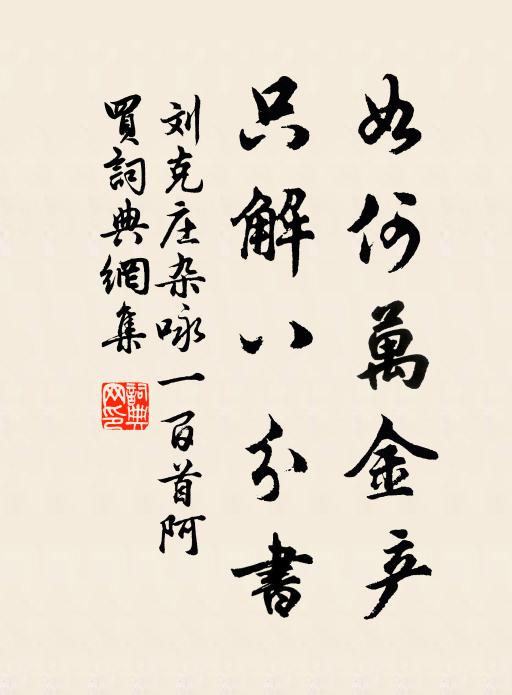 如何萬金产
只解八分書
刘克庄杂咏一百首阿
買詞典網集
詞典网印